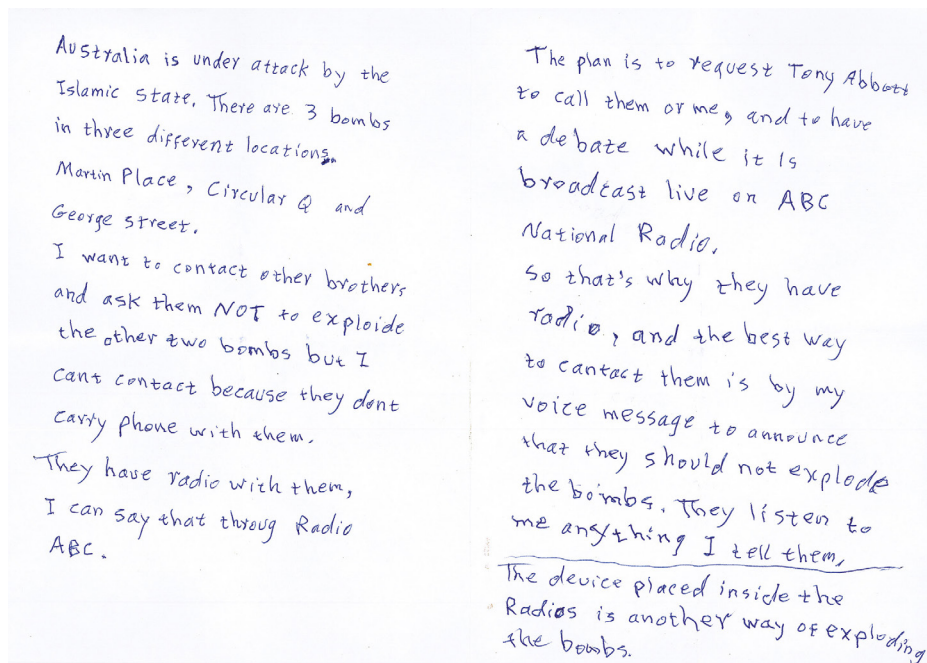 Australia is under attack by the
Islamic state. There are 3 bombs
in three different locations.
Martin Place, Circular Q and
George street.
I want to contact other brothers
and ask them NOT to exploide
the other two bombs but I
cant contact because they dont
carry phone with them.
They have radio with them,
I can say that throug Radio
ABC.
The plan is to request Tony Abbott
to call them or me, and to have
a debate while it is
broadcast live on ABC
National Radio.
So that's why they have
radio, and the best way
to cantact them is by my
voice message to announce
that they should not explode
the bombs. They listen to
me anything I tell them.
The device placed inside the
Radios is another way of exploding
the bombs.